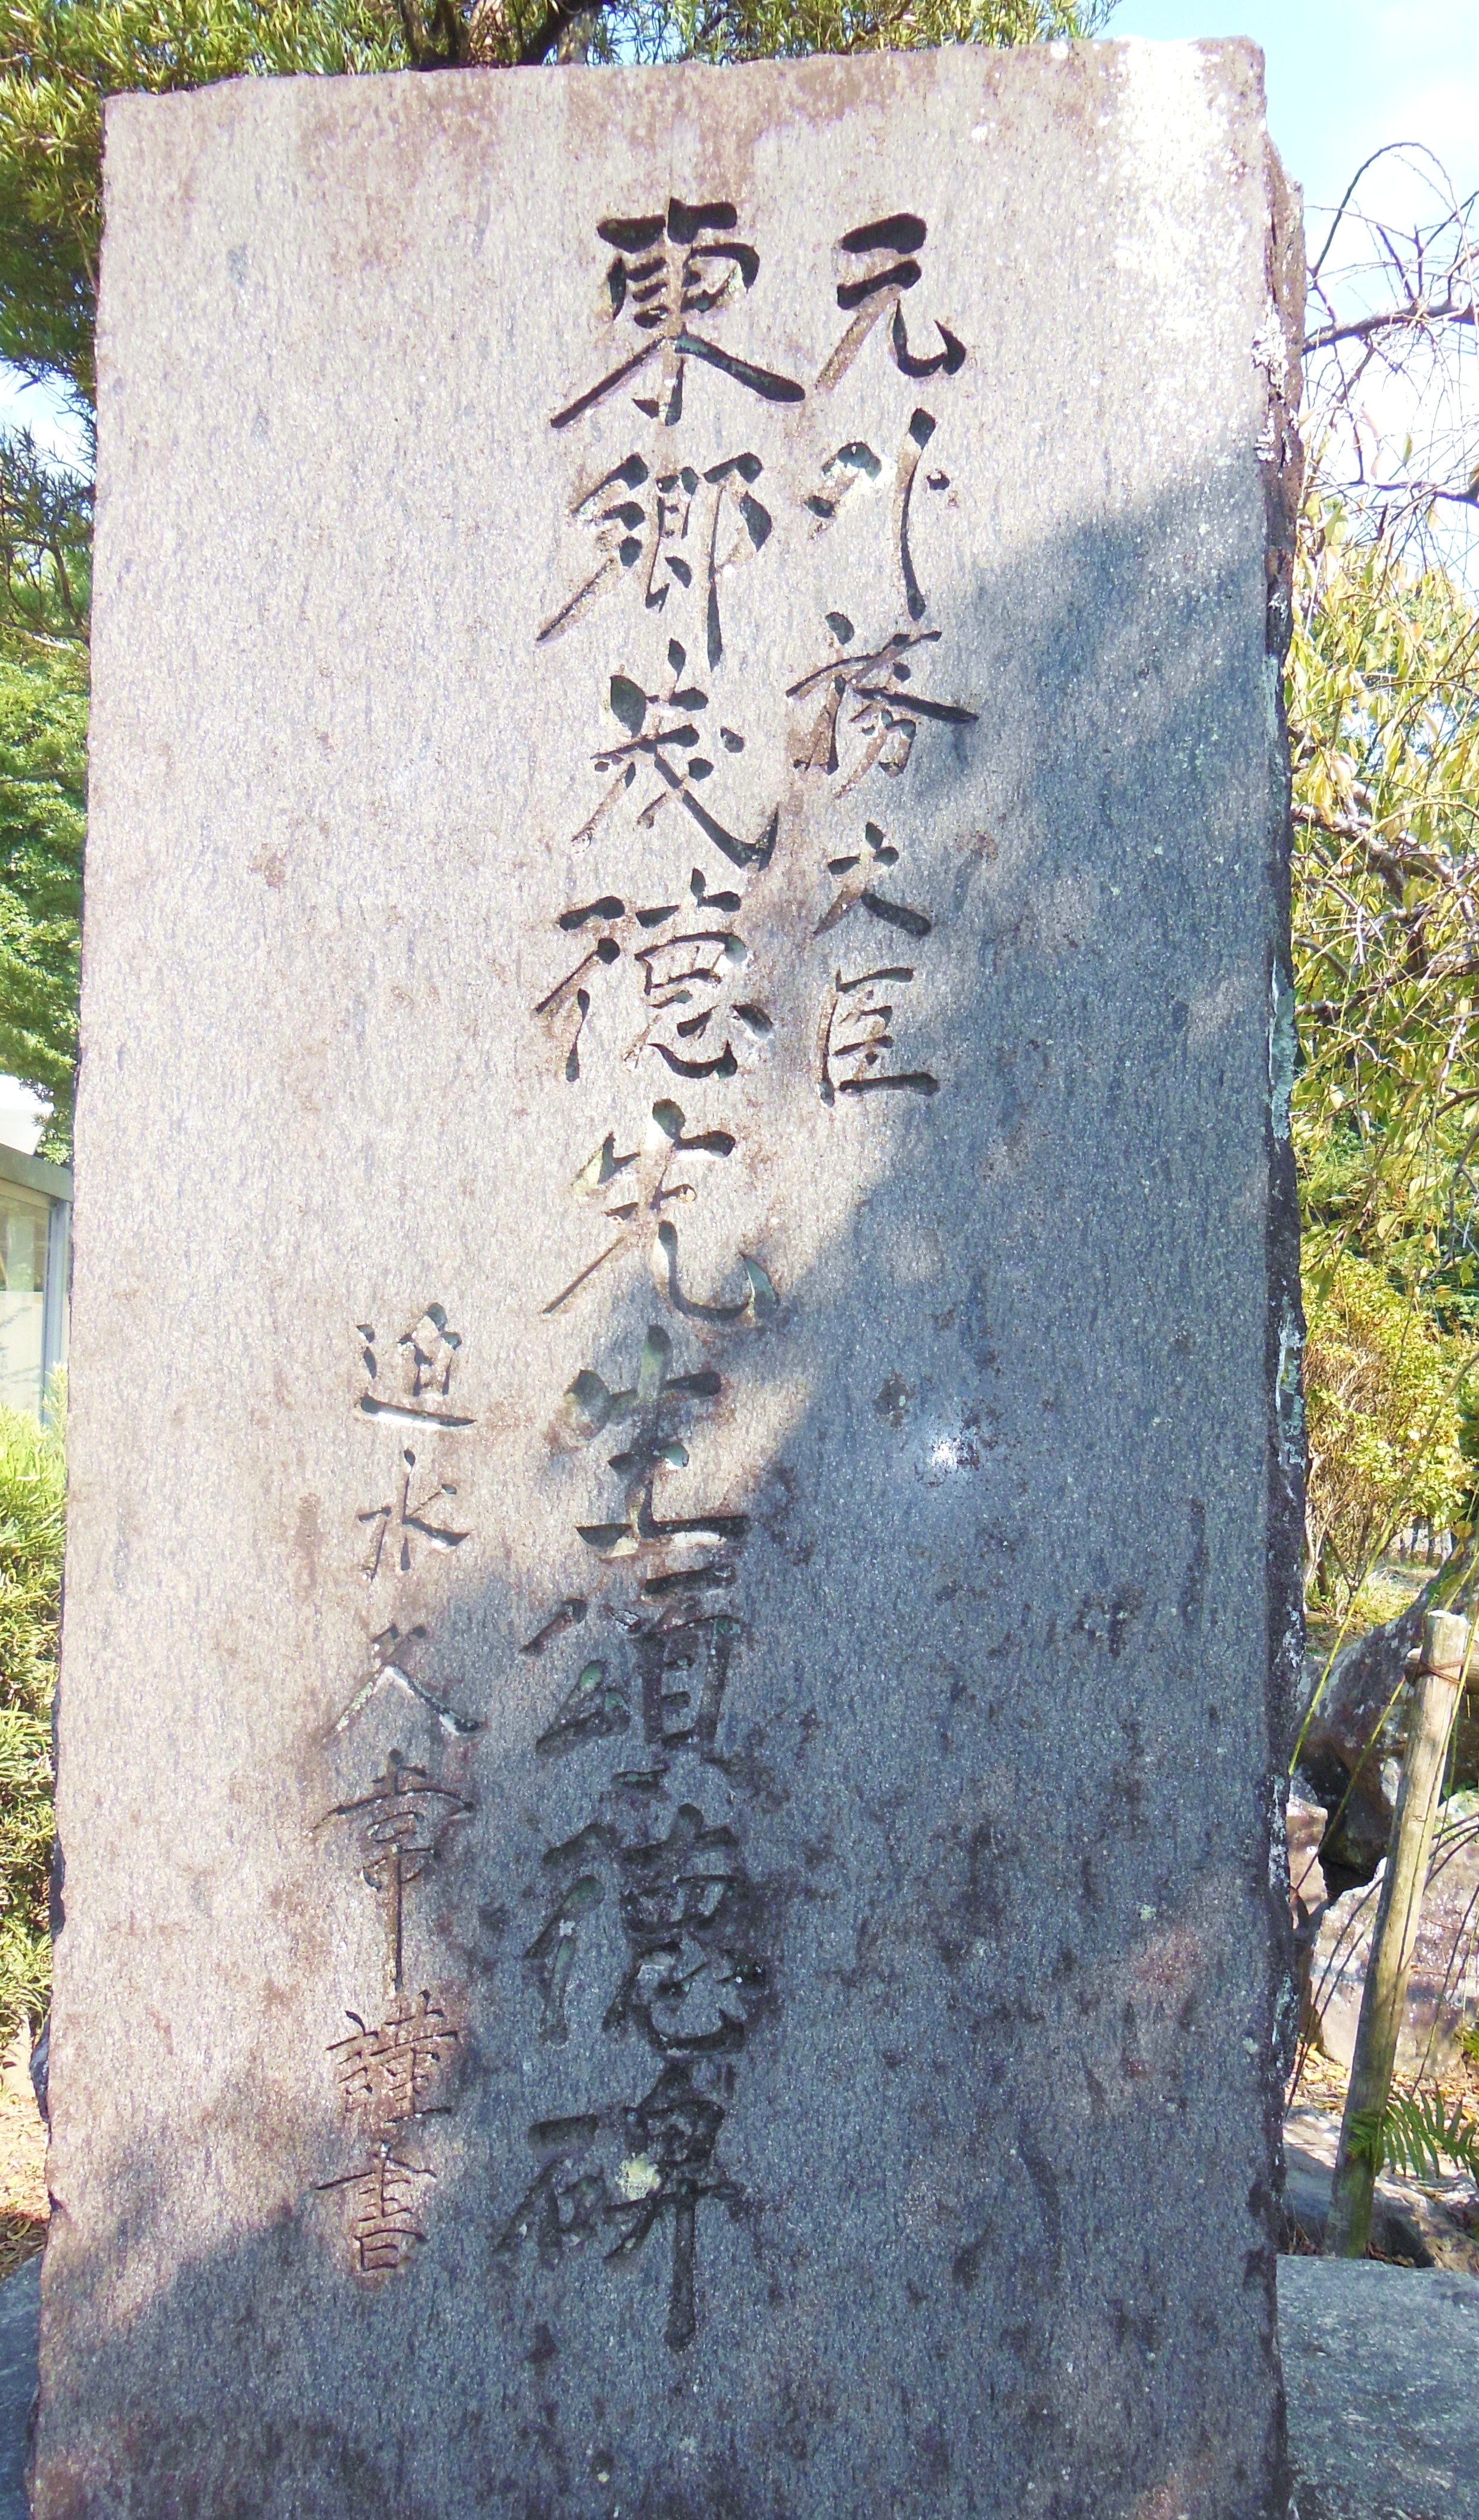 元外務大臣
東郷茂徳先生頌徳碑
迫水久常謹書